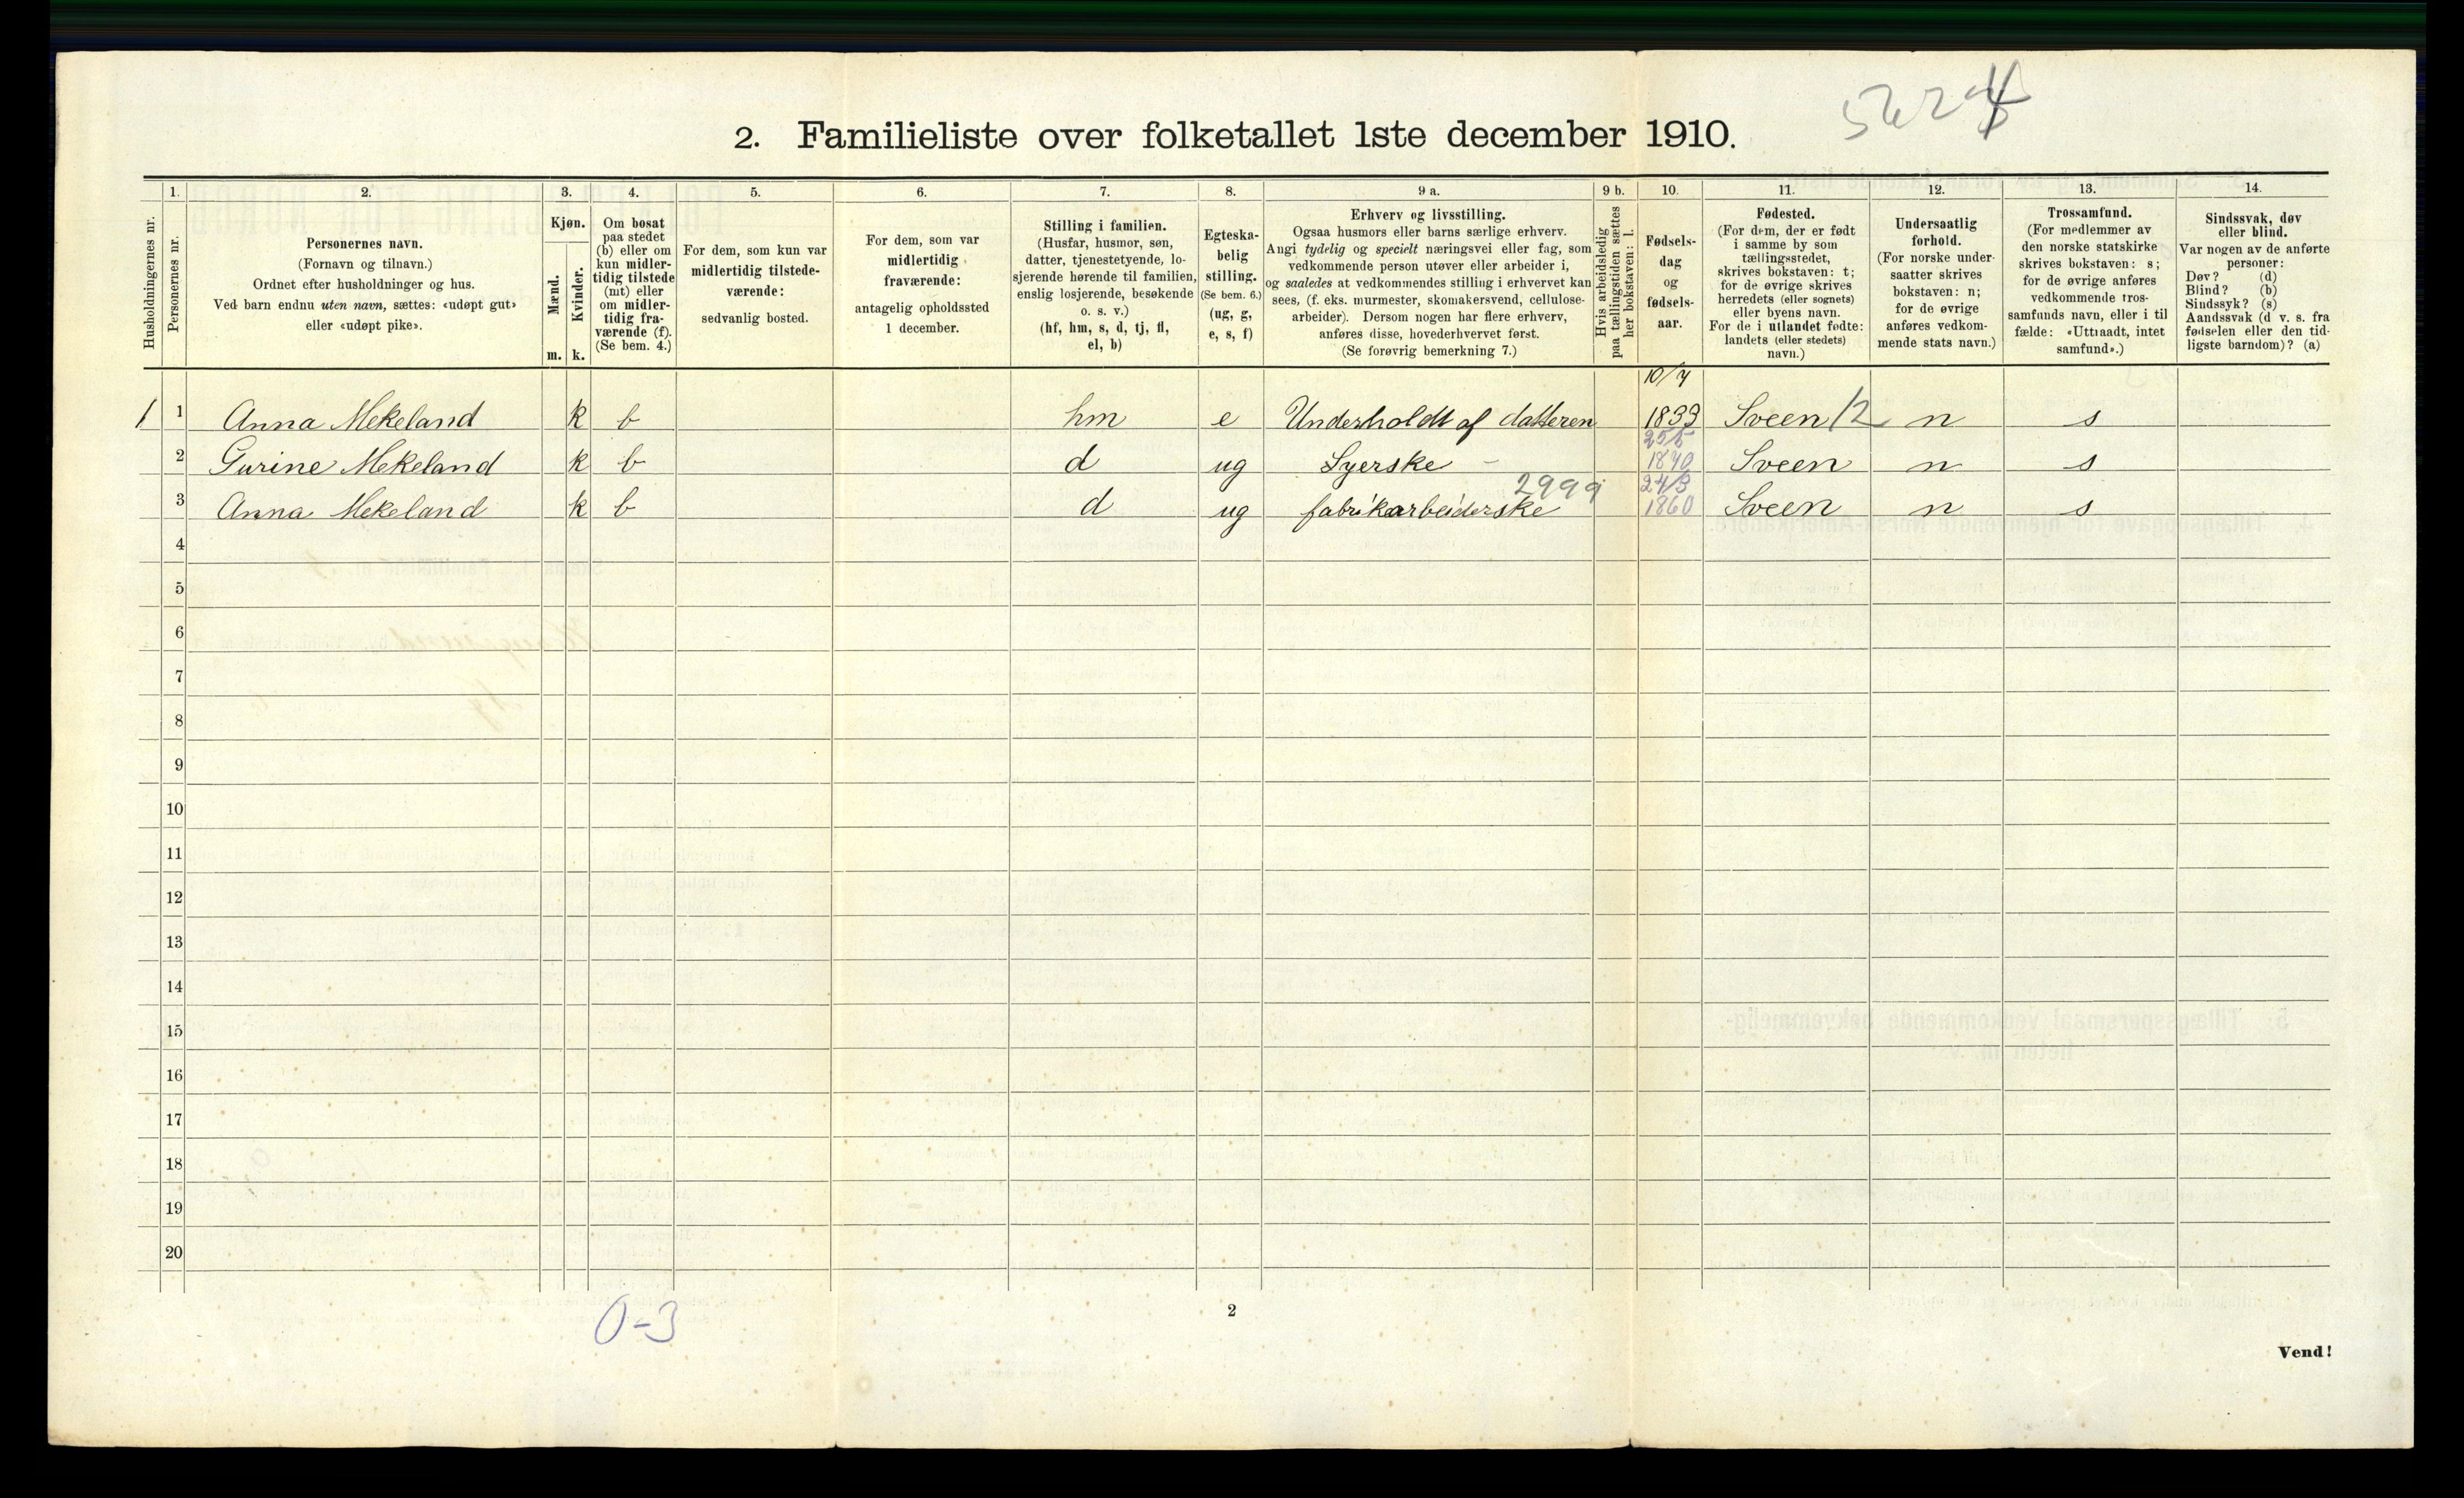 2. Familieliste over folketallet 1ste december 1910.
1. 2. 3. 4. 5. 6. 7. 8. 9 a. 9 b. 10. 11. 12. 13. 14.
Husholdningernes nr.
Personernes nr.
Personernes navn.
(Fornavn og tilnavn.)
Ordnet efter husholdninger og hus.
Ved barn endnu uten navn, sættes: «udøpt gut»
eller «udøpt pike».
Kjøn.
Mænd.
Kvinder.
m. k.
Om bosat
paa stedet
(b) eller om
kun midler-
tidig tilstede
(mt) eller
om midler-
tidig fra-
værende (f).
(Se bem. 4.)
For dem, som kun var
midlertidig tilstede-
værende:
sedvanlig bosted.
For dem, som var
midlertidig
fraværende:
antagelig opholdssted
1 december.
Stilling i familien.
(Husfar, husmor, søn,
datter, tjenestetyende, lo-
sjerende hørende til familien,
enslig losjerende, besøkende
o. s. v.)
(hf, hm, s, d, tj, fl,
el, b)
Egteska-
belig
stilling.
(Se bem. 6.)
(ug, g,
e, s, f)
Erhverv og livsstilling.
Ogsaa husmors eller barns særlige erhverv.
Angi tydelig og specielt næringsvei eller fag, som
vedkommende person utøver eller arbeider i,
og saaledes at vedkommendes stilling i erhvervet kan
sees, (f. eks. murmester, skomakersvend, cellulose-
arbeider). Dersom nogen har flere erhverv,
anføres disse, hovederhvervet først.
(Se forøvrig bemerkning 7.)
Hvis arbeidsledig
paa tællingstiden sættes
her bokstaven: l.
Fødsels-
dag
og
fødsels-
aar.
Fødested.
(For dem, der er født
i samme by som
tællingsstedet,
skrives bokstaven: t;
for de øvrige skrives
herredets (eller sognets)
eller byens navn.
For de i utlandet fødte:
landets (eller stedets)
navn.)
Undersaatlig
forhold.
(For norske under-
saatter skrives
bokstaven: n;
for de øvrige
anføres vedkom-
mende stats navn.)
Trossamfund.
(For medlemmer av
den norske statskirke
skrives bokstaven: s;
for de øvrige anføres
vedkommende tros-
samfunds navn, eller i til-
fælde: «Uttraadt, intet
samfund».)
Sindssvak, døv
eller blind.
Var nogen av de anførte
personer:
Døv? (d)
Blind? (b)
Sindssyk? (s)
Aandssvak (d v. s. fra
fødselen eller den tid-
ligste barndom)? (a)
10/7
1 1 Anna Mekeland k b hm e Underholdt af datteren 1833 Sveen 12 n s
2 Gurine Mekeland k b d ug Syerske - 1870 Sveen n s
2999
24/3
3 Anna Mekeland k b d ug fabrikarbeiderske 1860 Sveen n s
4
5
6
7
8
9
10
11
12
13
14
15
16
17
18
19
20
0-3
2
Vend!